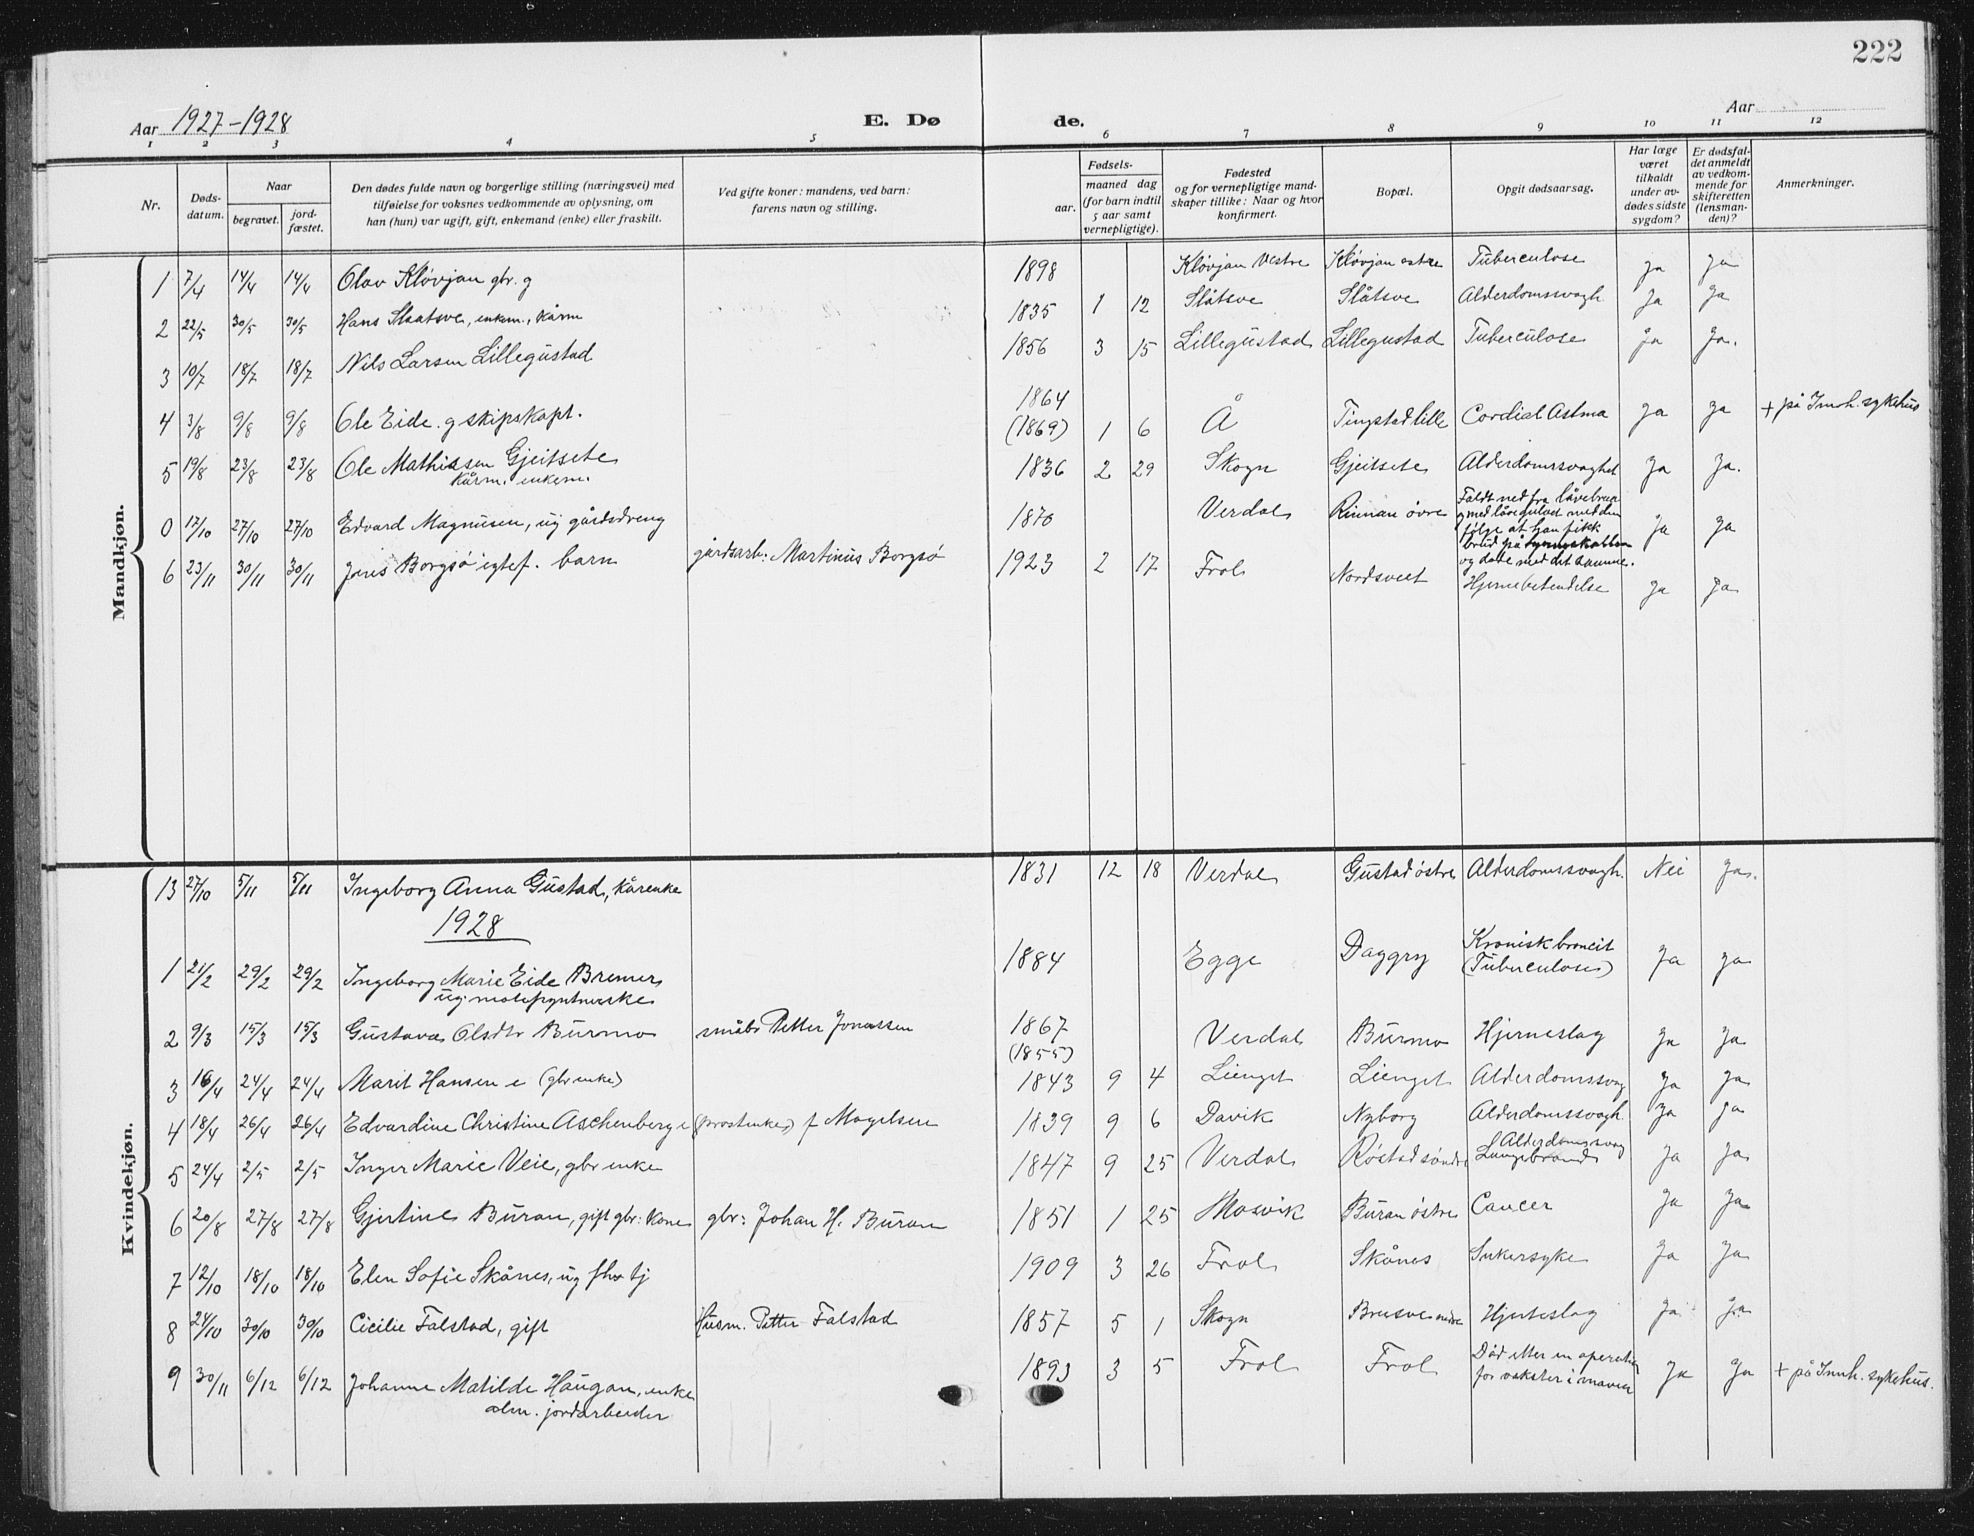 222
Aar 1927-1928
E. Dø
de.
Aar
1 2 3 4 5 6 7 8 9 10 11 12
Nr.
Døds-
datum.
Naar
begravet.
jord-
fæstet.
Den dødes fulde navn og borgerlige stilling (næringsvei) med
tilføielse for voksnes vedkommende av oplysning, om
han (hun) var ugift, gift, enkemand (enke) eller fraskilt.
Ved gifte koner: mandens, ved barn:
farens navn og stilling.
Fødsels-
aar.
maaned dag
(for barn indtil
5 aar samt
vernepligtige).
Fødested
og for vernepligtige mand-
skaper tillike: Naar og hvor
konfirmert.
Bopæl.
Opgit dødsaarsag.
Har læge
været
tilkaldt
under av-
dødes sidste
sygdom?
Er dødsfal-
det anmeldt
av vedkom-
mende for
skifteretten
(lensman-
den)?
Anmerkninger.
Mandkjøn.
1 7/4 14/4 14/4 Olav Kløvjan gbr. g 1898 Kløvjan Vestre Kløvjan østre Tuberculose Ja Ja
2 22/5 30/5 30/5 Hans Slaatsve, enkem., kårm 1835 1 12 Slåtsve Slåtsve Alderdomssvagh. Ja Ja
3 10/7 18/7 18/7 Nils Larsen Lillegustad 1856 3 15 Lillegustad Lillegustad Tuberculose Ja Ja.
4 3/8 9/8 9/8 Ole Eide. g skipskapt. 1864
(1869) 1 6 Å Tingstad lille Cordial Astma Ja Ja + på Innh. sykehus
5 19/8 23/8 23/8 Ole Mathiasen Gjeitsete 1836 2 29 Skogn Gjeitsete Alderdomssvaghet Ja Ja.
kårm. enkem.
0 17/10 27/10 27/10 Edvard Magnusen, ug gårdsdreng 1870 Verdal Rinnan øvre Faldt ned fra låvebrua
og døde med det samme. Ja Ja
6 23/11 30/11 30/11 Jens Borgsø egtef. barn gårdsarb: Martinus Borgsø 1923 2 17 Frol Nordsveet Hjernebetendelse Ja Ja
Kvindekjøn.
13 27/10 5/11 5/11 Ingeborg Anna Gustad, kårenke 1831 12 18 Verdal Gustad østre Alderdomssvagh. Nei Ja.
1928
1 21/2 29/2 29/2 Ingeborg Marie Eide Bremer 1884 Egge Daggry Kronisk broncit
(Tuberculose) Ja Ja
ug. motepynterske
2 9/3 15/3 15/3 Gustava Olsdtr Burmo småbr Petter Jonassen 1867
(1855) Verdal Burmo Hjerneslag Ja Ja
3 16/4 24/4 24/4 Marit Hansen e (gbr enke) 1843 9 4 Lienget Lienget Alderdomssvag Ja Ja
4 18/4 26/4 26/4 Edvardine Christine Aschenberg e (prostenke) f Magelsen 1839 9 6 Davik Nyborg Alderdomssvagh. Ja Ja
5 24/4 2/5 2/5 Inger Marie Veie, gbr enke 1847 9 25 Verdal Røstad søndre Alderdomssvag
Lungebrand Ja Ja
6 20/8 27/8 27/8 Gjertine Buran, gift gbr: kone gbr: Johan H. Buran 1851 1 25 Mosvik Buran østre Cancer Ja Ja
7 12/10 18/10 18/10 Elen Sofie Skånes, ug fhv tj 1909 3 26 Frol Skånes Sukersyke Ja Ja
8 24/10 30/10 30/10 Cicilie Falstad, gift Husm. Petter Falstad 1857 5 1 Skogn Breisve nedre Hjerteslag Ja Ja
9 30/11 6/12 6/12 Johanne Matilde Haugan, enke 1893 3 5 Frol Frol Død etter en operation
for vekster i maven Ja Ja + på Innh. sykehus.
alm. jordarbeider